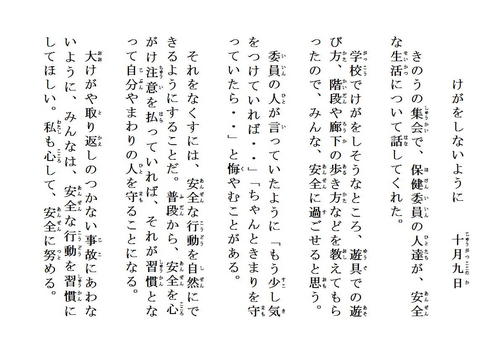 けがをしないように　　十月九日
きのうの集会で、保健委員の人達が、安全
な生活について話してくれた。
学校でけがをしそうなところ、遊具での遊
び方、階段や廊下の歩き方などを教えてもら
ったので、みんな、安全に過ごせると思う。
委員の人が言っていたように「もう少し気
をつけていれば・・」「ちゃんときまりを守
っていたら・・」と悔やむことがある。
それをなくすには、安全な行動を自然にで
きるようにすることだ。普段から、安全を心
がけ注意を払っていれば、それが習慣とな
って自分やまわりの人を守ることになる。
大けがや取り返しのつかない事故にあわな
いように、みんなは、安全な行動を習慣に
してほしい。私も心して、安全に努める。